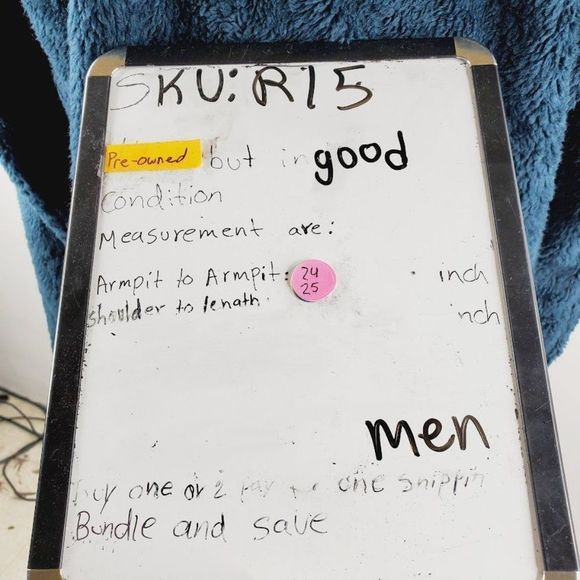 SKU: R15
Pre-owned but in good
condition
Measurement are:
Armpit to Armpit: 24 inch
shoulder to lenath 25 nch
men
buy one or 2 pay one snippin
Bundle and save